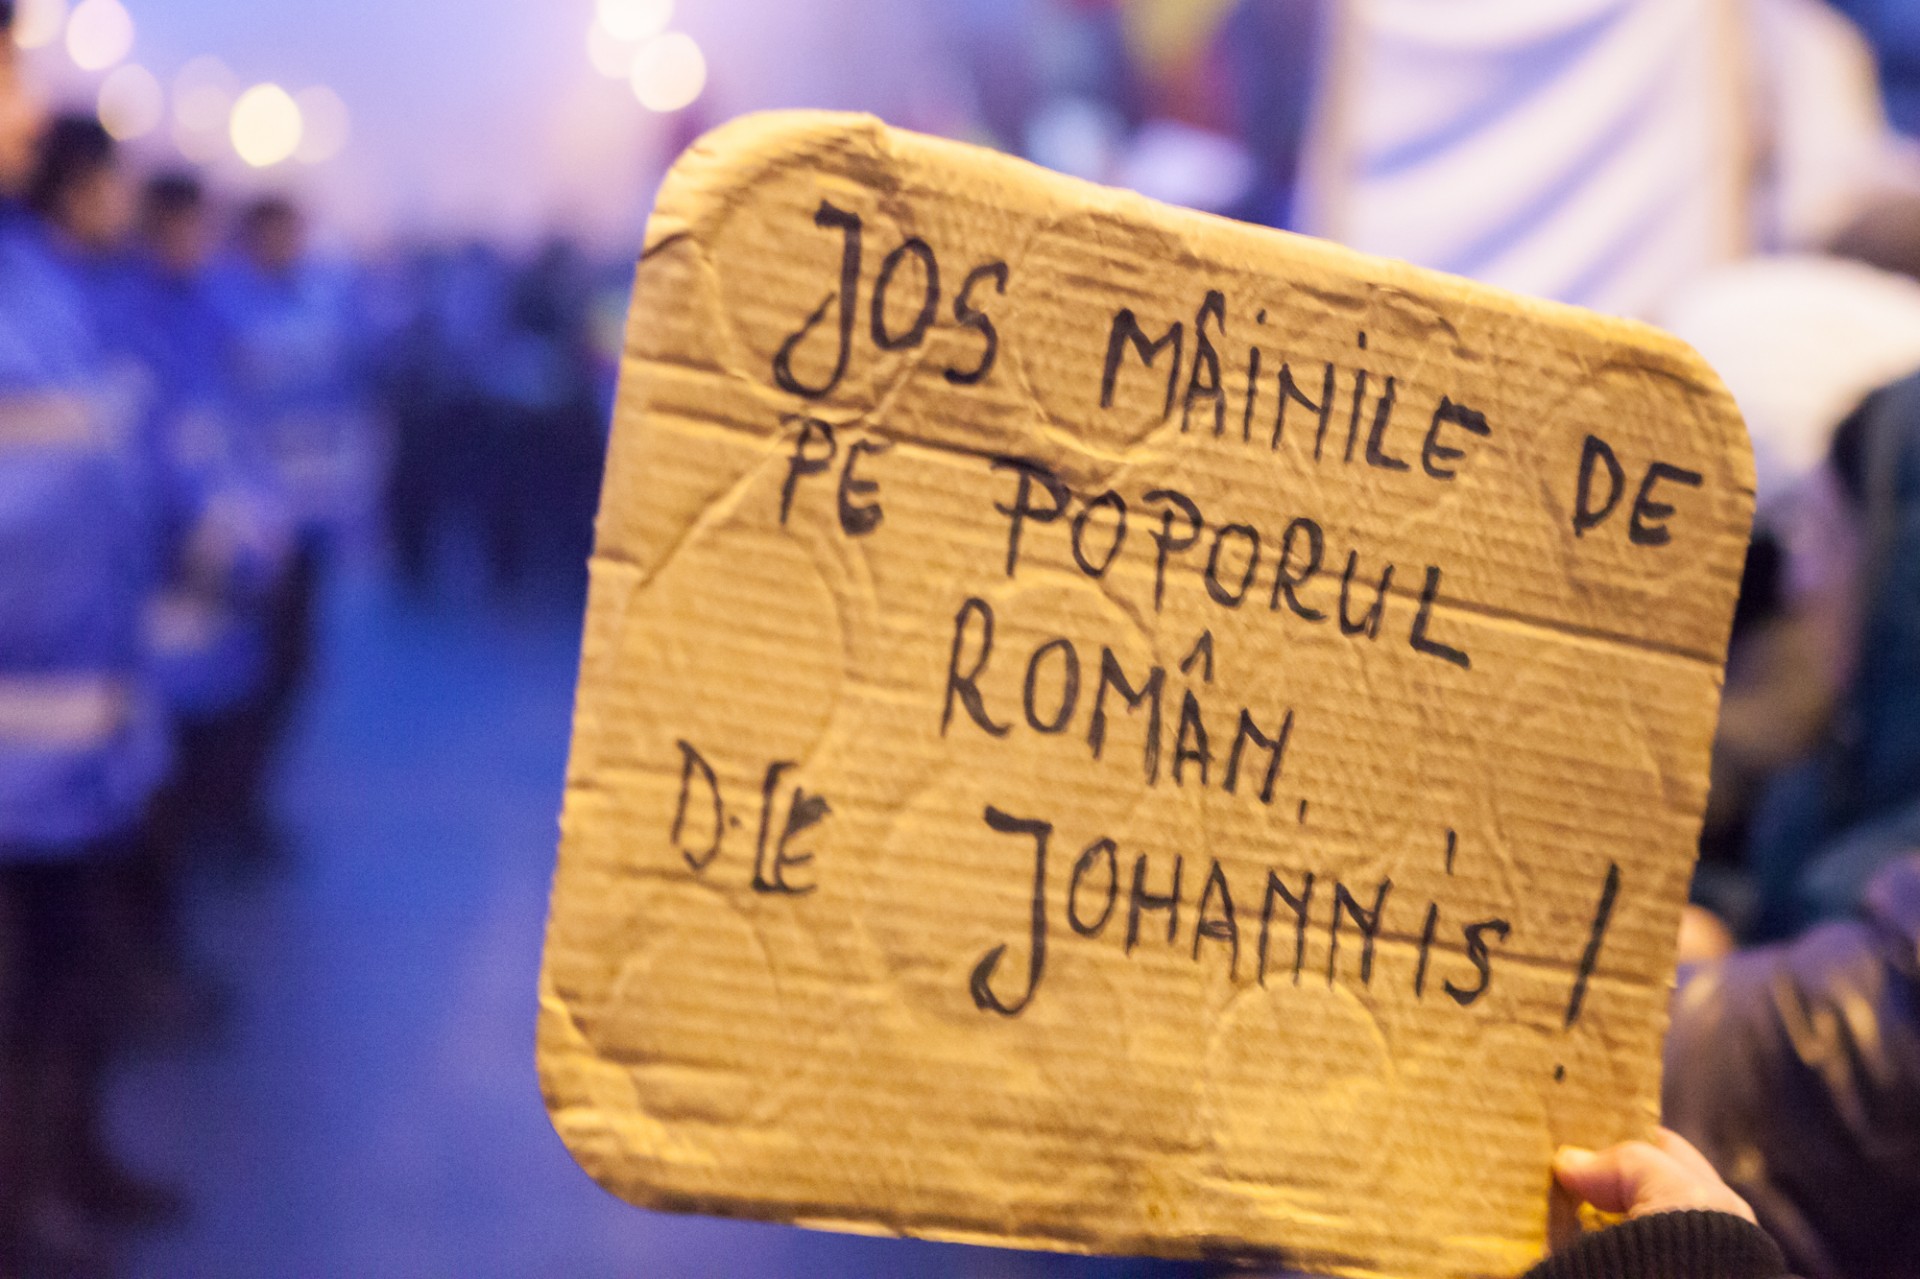 JOS MÂINILE DE
PE POPORUL
ROMÂN,
D-LE JOHANNIS!